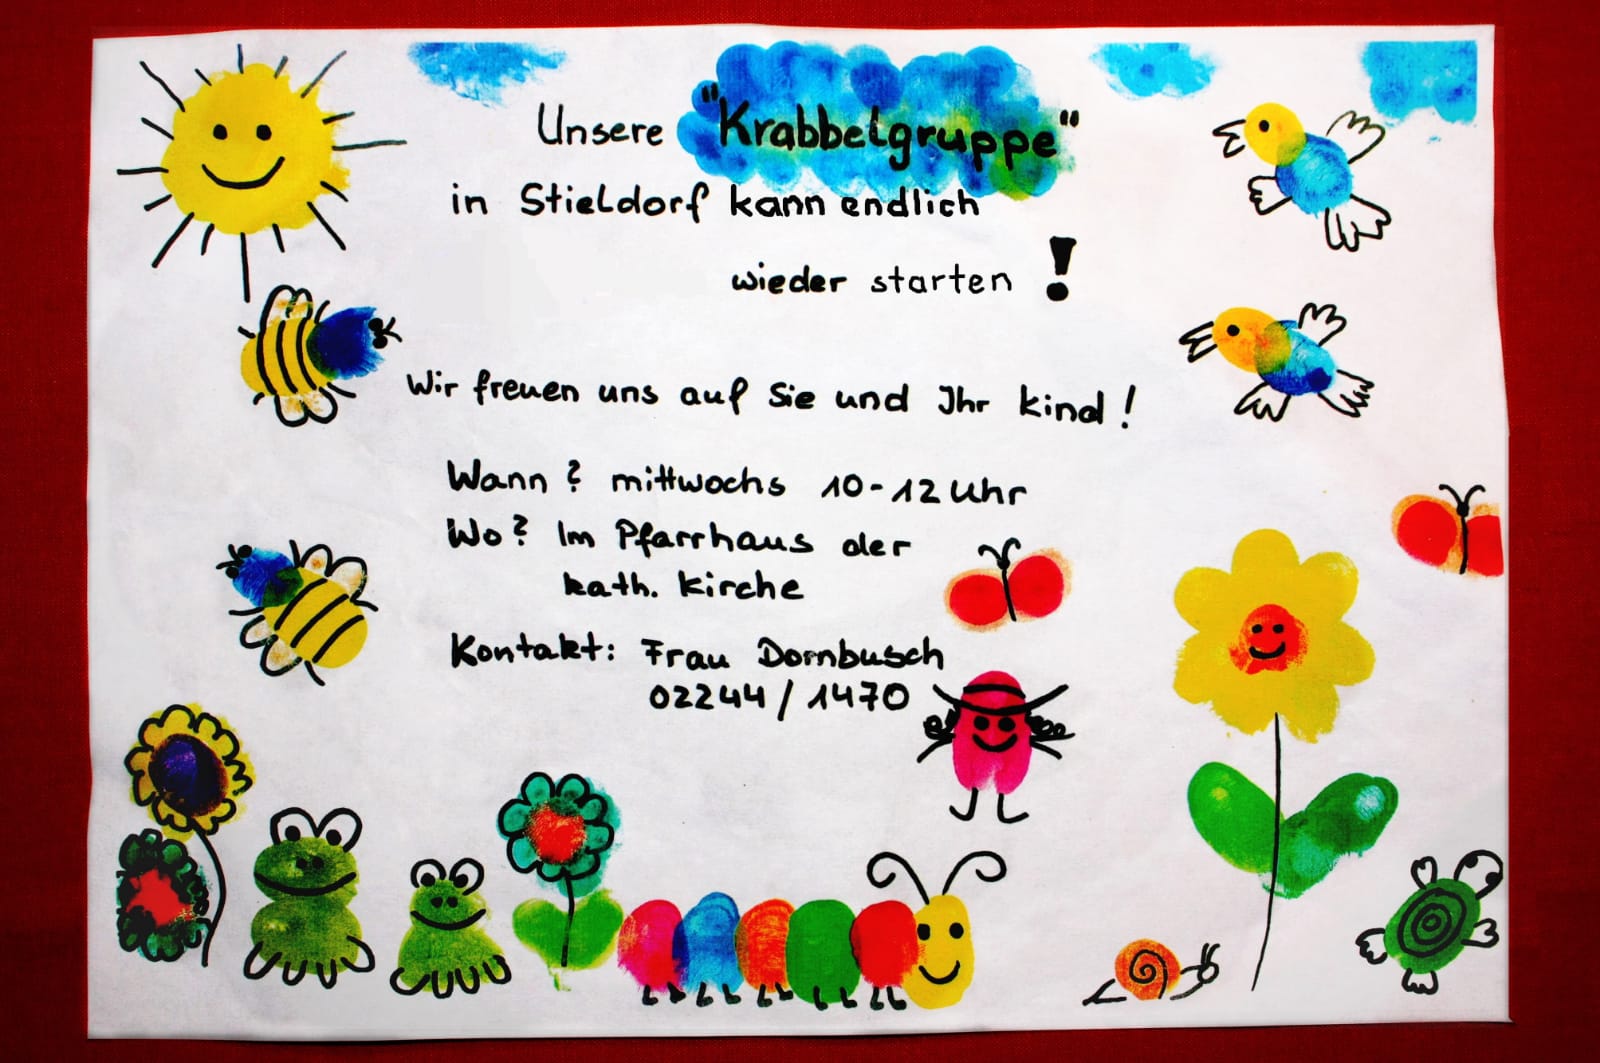 Unsere "Krabbelgruppe"
in Stieldorf kann endlich
wieder starten !
Wir freuen uns auf Sie und Ihr Kind !
Wann ? mittwochs 10-12 Uhr
Wo ? Im Pfarrhaus der
kath. Kirche
Kontakt: Frau Dornbusch
02244 / 1470